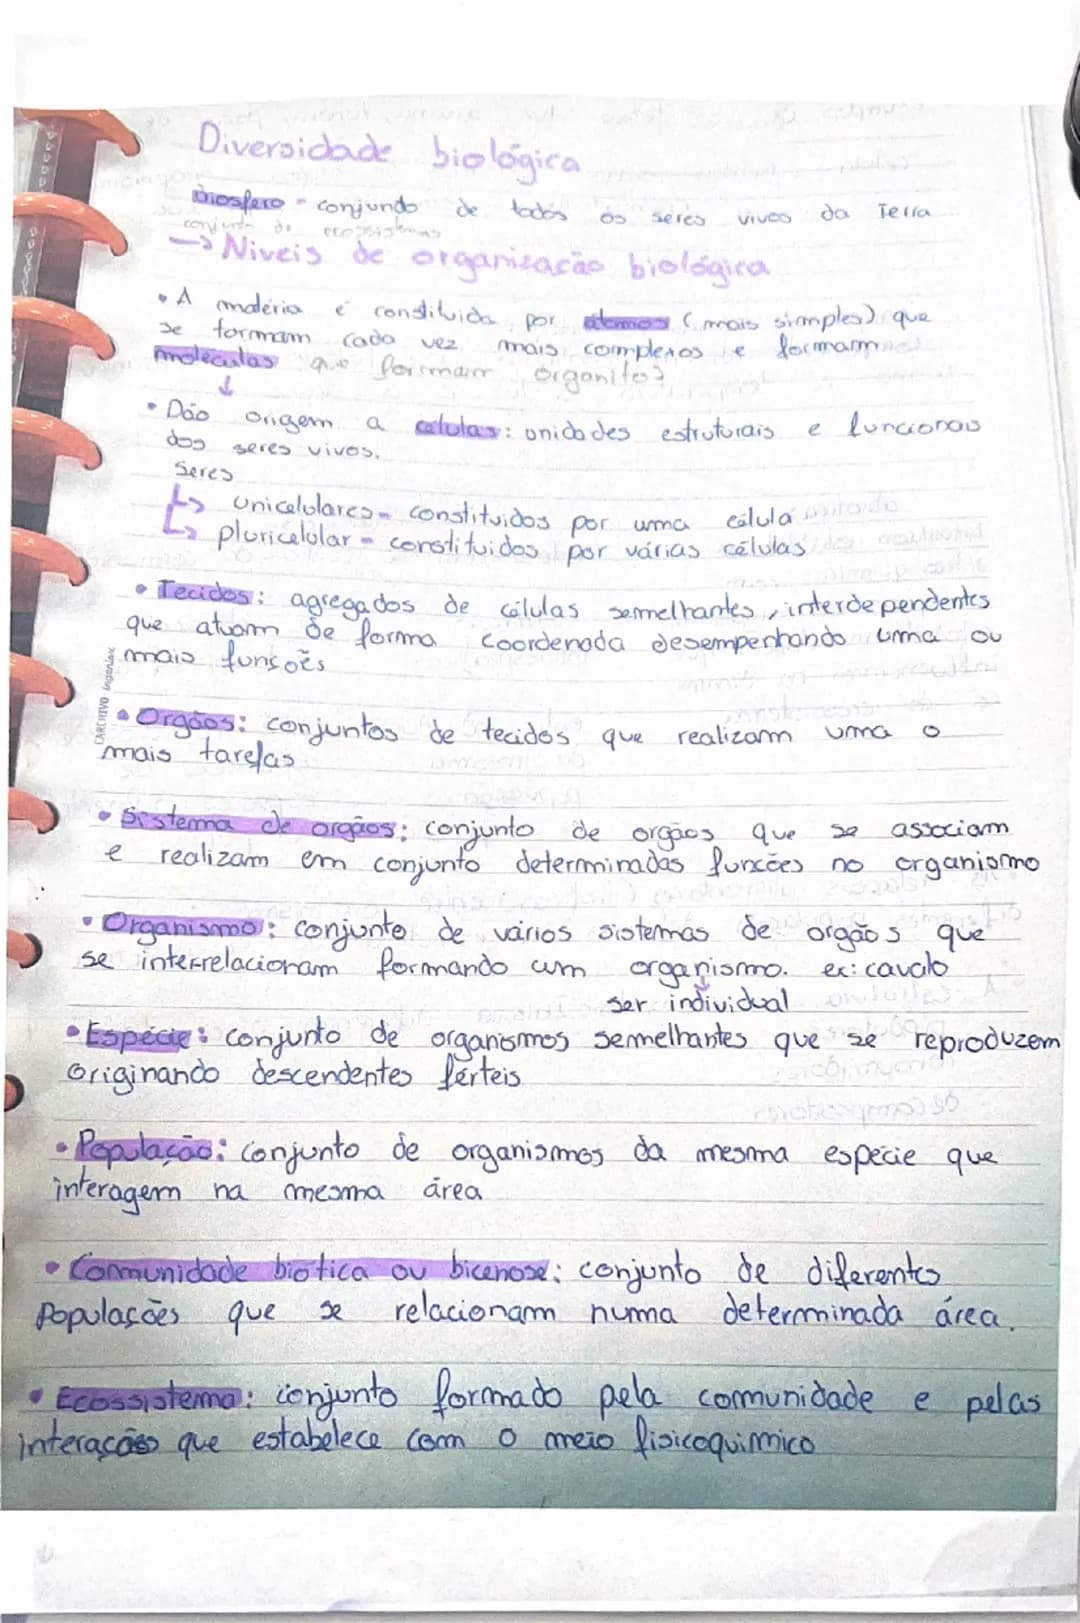 Diversidade biológica
Biosfera - conjundo de todos os seres vivos da Terra
conjunto de ecossistemas
→ Niveis de organização biológica
• A matéria é constituida por átomos (mais simples) que
se tormam cada vez mais complexos e formam
moléculas que formam organitos
↓
• Dão origem a celulas: unidades estruturais e funcionais
dos seres vivos.
Seres
↳ Unicelulares - constituidos por uma célula
↳ pluricelular - constituidos por várias células
• Tecidos: agregados de células semelhantes, interdependentes
que atuam de forma coordenada desempenhando uma ou
mais funsões
• Orgãos: conjuntos de tecidos que realizam uma o
mais tarefas
• Sistema de orgãos: conjunto de orgãos que se associam
e realizam em conjunto determinadas funcões no organismo
• Organismo: conjunto de vários sistemas de orgãos que
se interrelacionam formando um organismo. ex: cavalo
↓
ser individual
• Espécie: conjunto de organismos semelhantes que se reproduzem
originando descendentes férteis
• População: conjunto de organismos da mesma espécie que
interagem na mesma área
• Comunidade biotica ou bicenose: conjunto de diferentes
Populações que se relacionam numa determinada área.
• Ecossistema: conjunto formado pela comunidade e pelas
interações que estabelece com o meio fisicoquimico